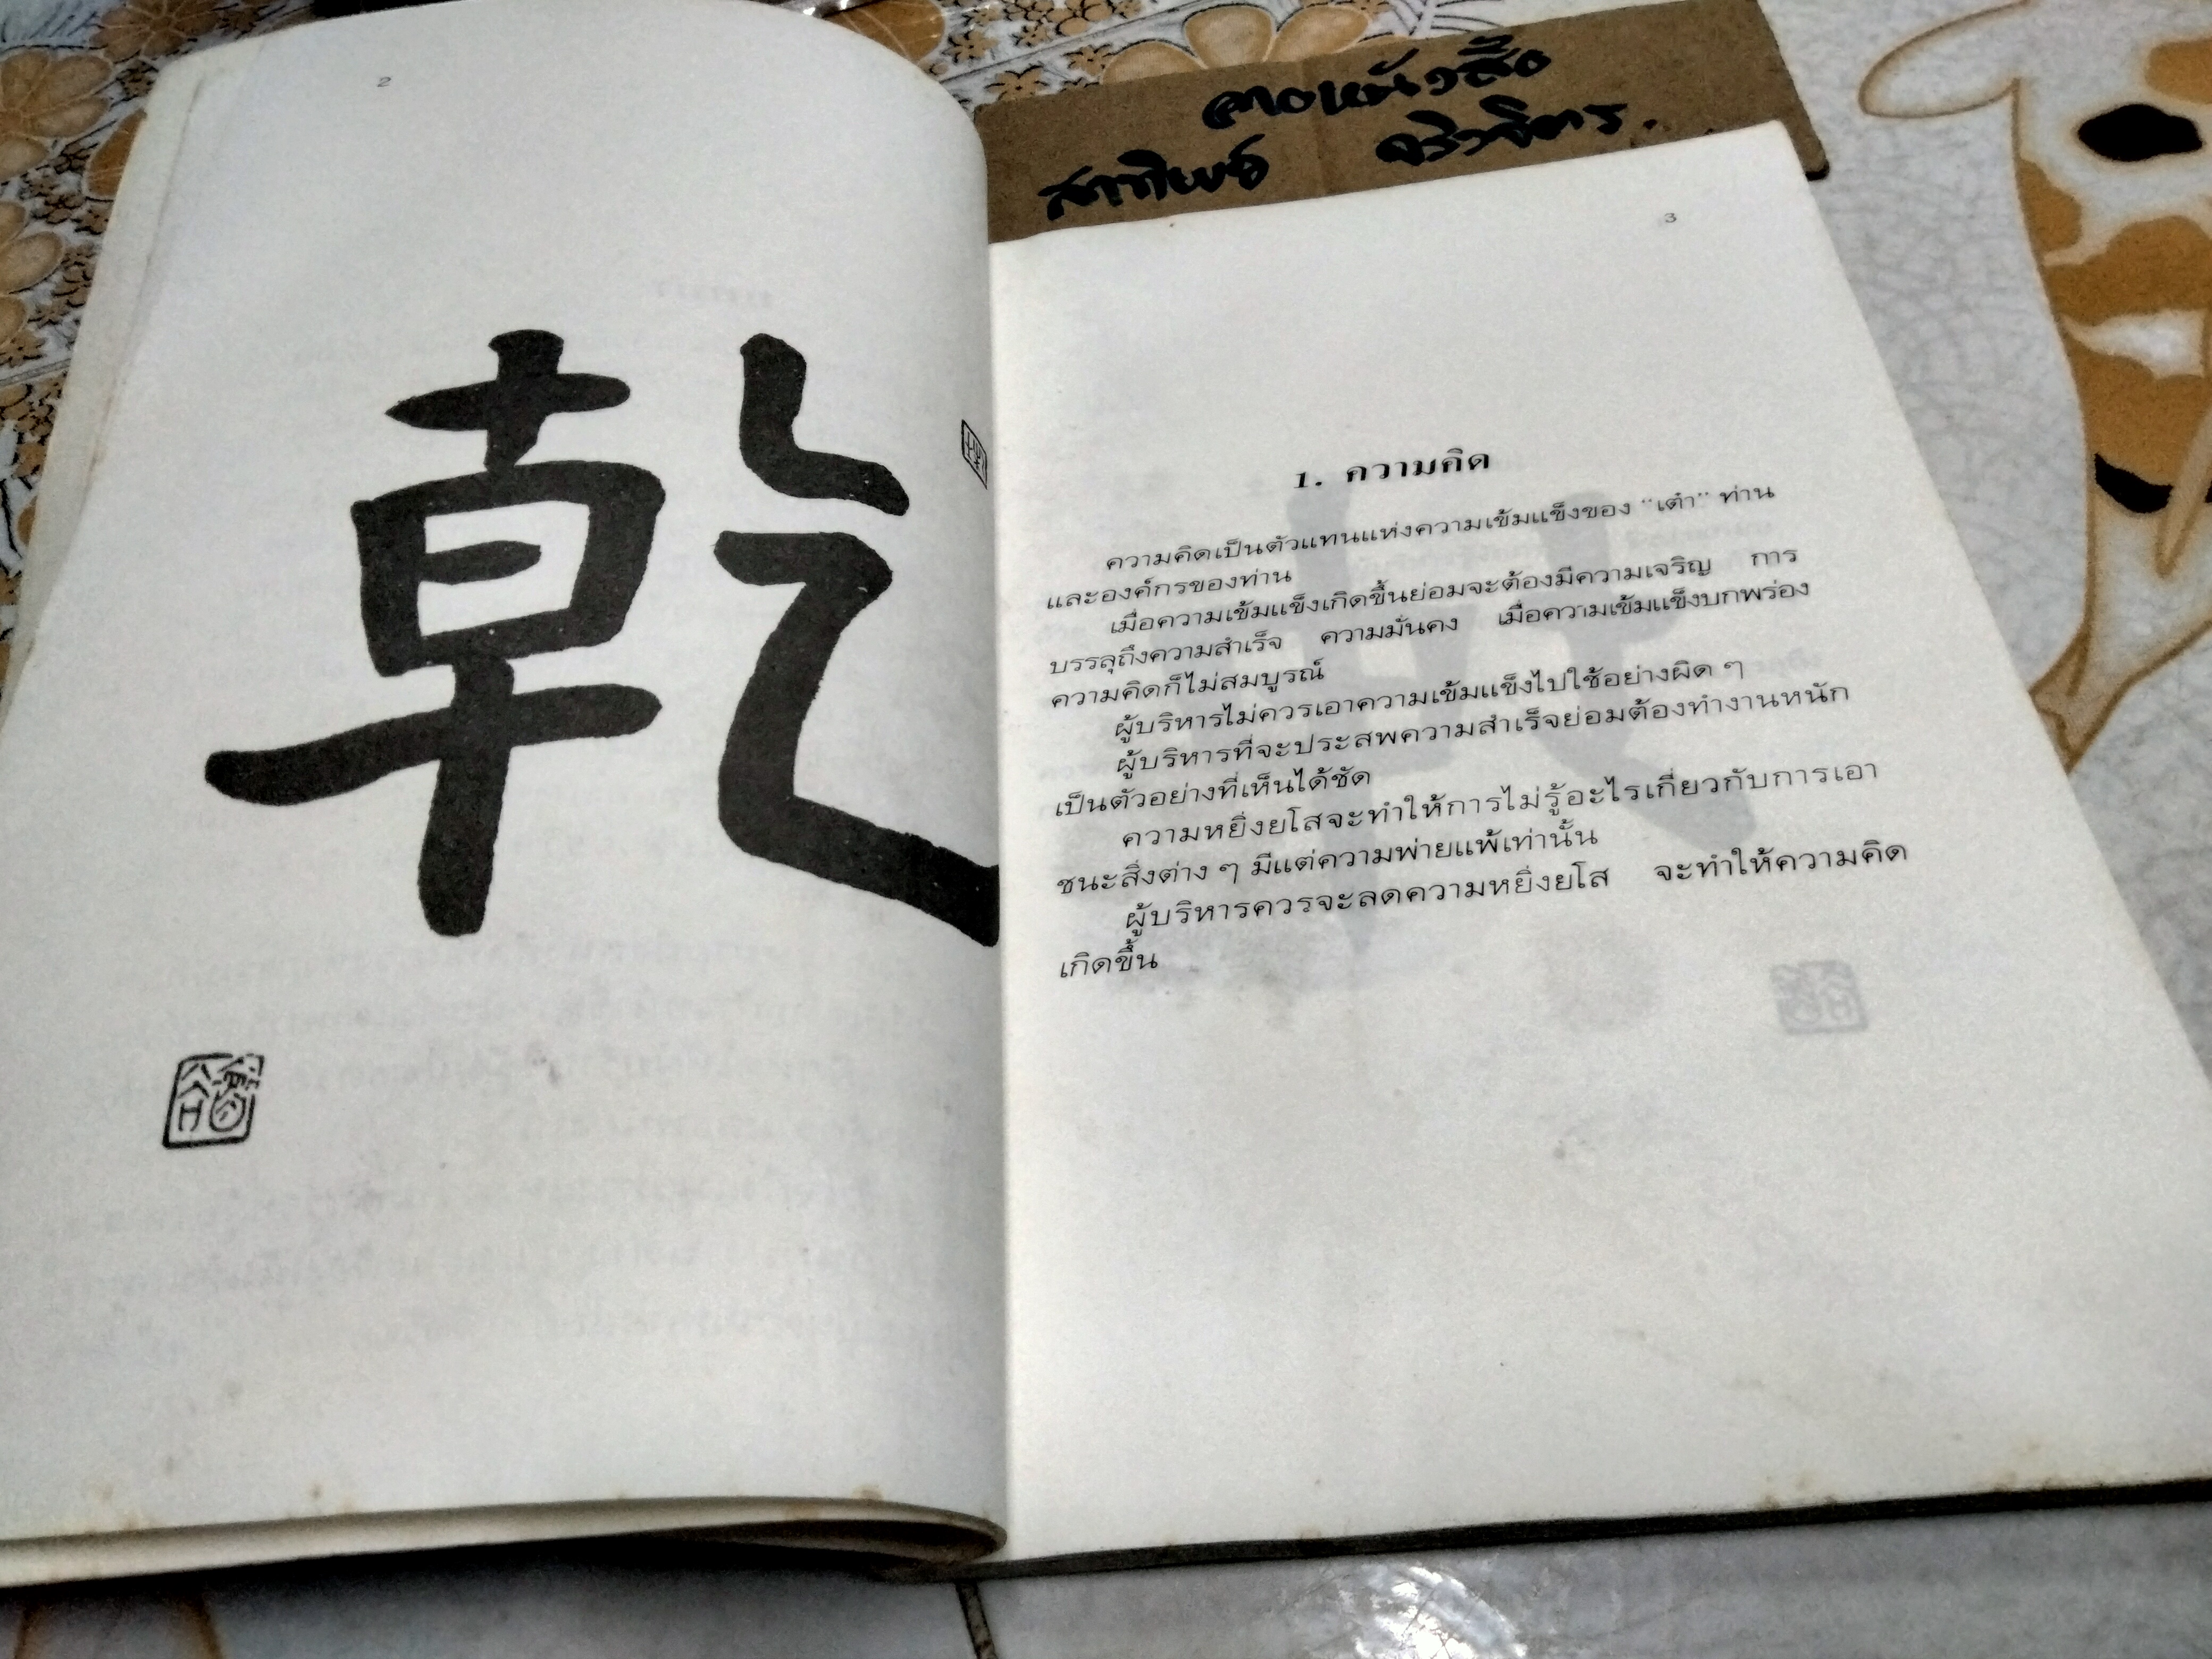 2
乾
3
1. ความคิด
ความคิดเป็นตัวแทนแห่งความเข้มแข็งของ "เต๋า" ท่าน
และองค์กรของท่าน
เมื่อความเข้มแข็งเกิดขึ้นย่อมจะต้องมีความเจริญ การ
บรรลุถึงความสำเร็จ ความมั่นคง เมื่อความเข้มแข็งบกพร่อง
ความคิดก็ไม่สมบูรณ์
ผู้บริหารไม่ควรเอาความเข้มแข็งไปใช้อย่างผิด ๆ
ผู้บริหารที่จะประสพความสำเร็จย่อมต้องทำงานหนัก
เป็นตัวอย่างที่เห็นได้ชัด
ความหยิ่งยโสจะทำให้การไม่รู้อะไรเกี่ยวกับการเอา
ชนะสิ่งต่าง ๆ มีแต่ความพ่ายแพ้เท่านั้น
ผู้บริหารควรจะลดความหยิ่งยโส จะทำให้ความคิด
เกิดขึ้น